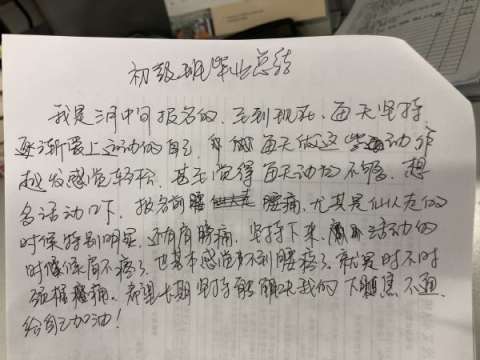 初级班毕业总结
我是三月中间报名的，至到现在，每天坚持，
逐渐爱上运动的自己，每天做这些动作
越发感觉轻松，甚至觉得每天动的不够，想
多活动以下，报名前腰痛，尤其是
时候特别明显，还有肩膀痛，坚持下来，活动的
时候肩不疼了，也基本感觉不到腰疼了，就是时不时
颈椎痛，希望长期坚持能解决我的下焦不通
给自己加油！